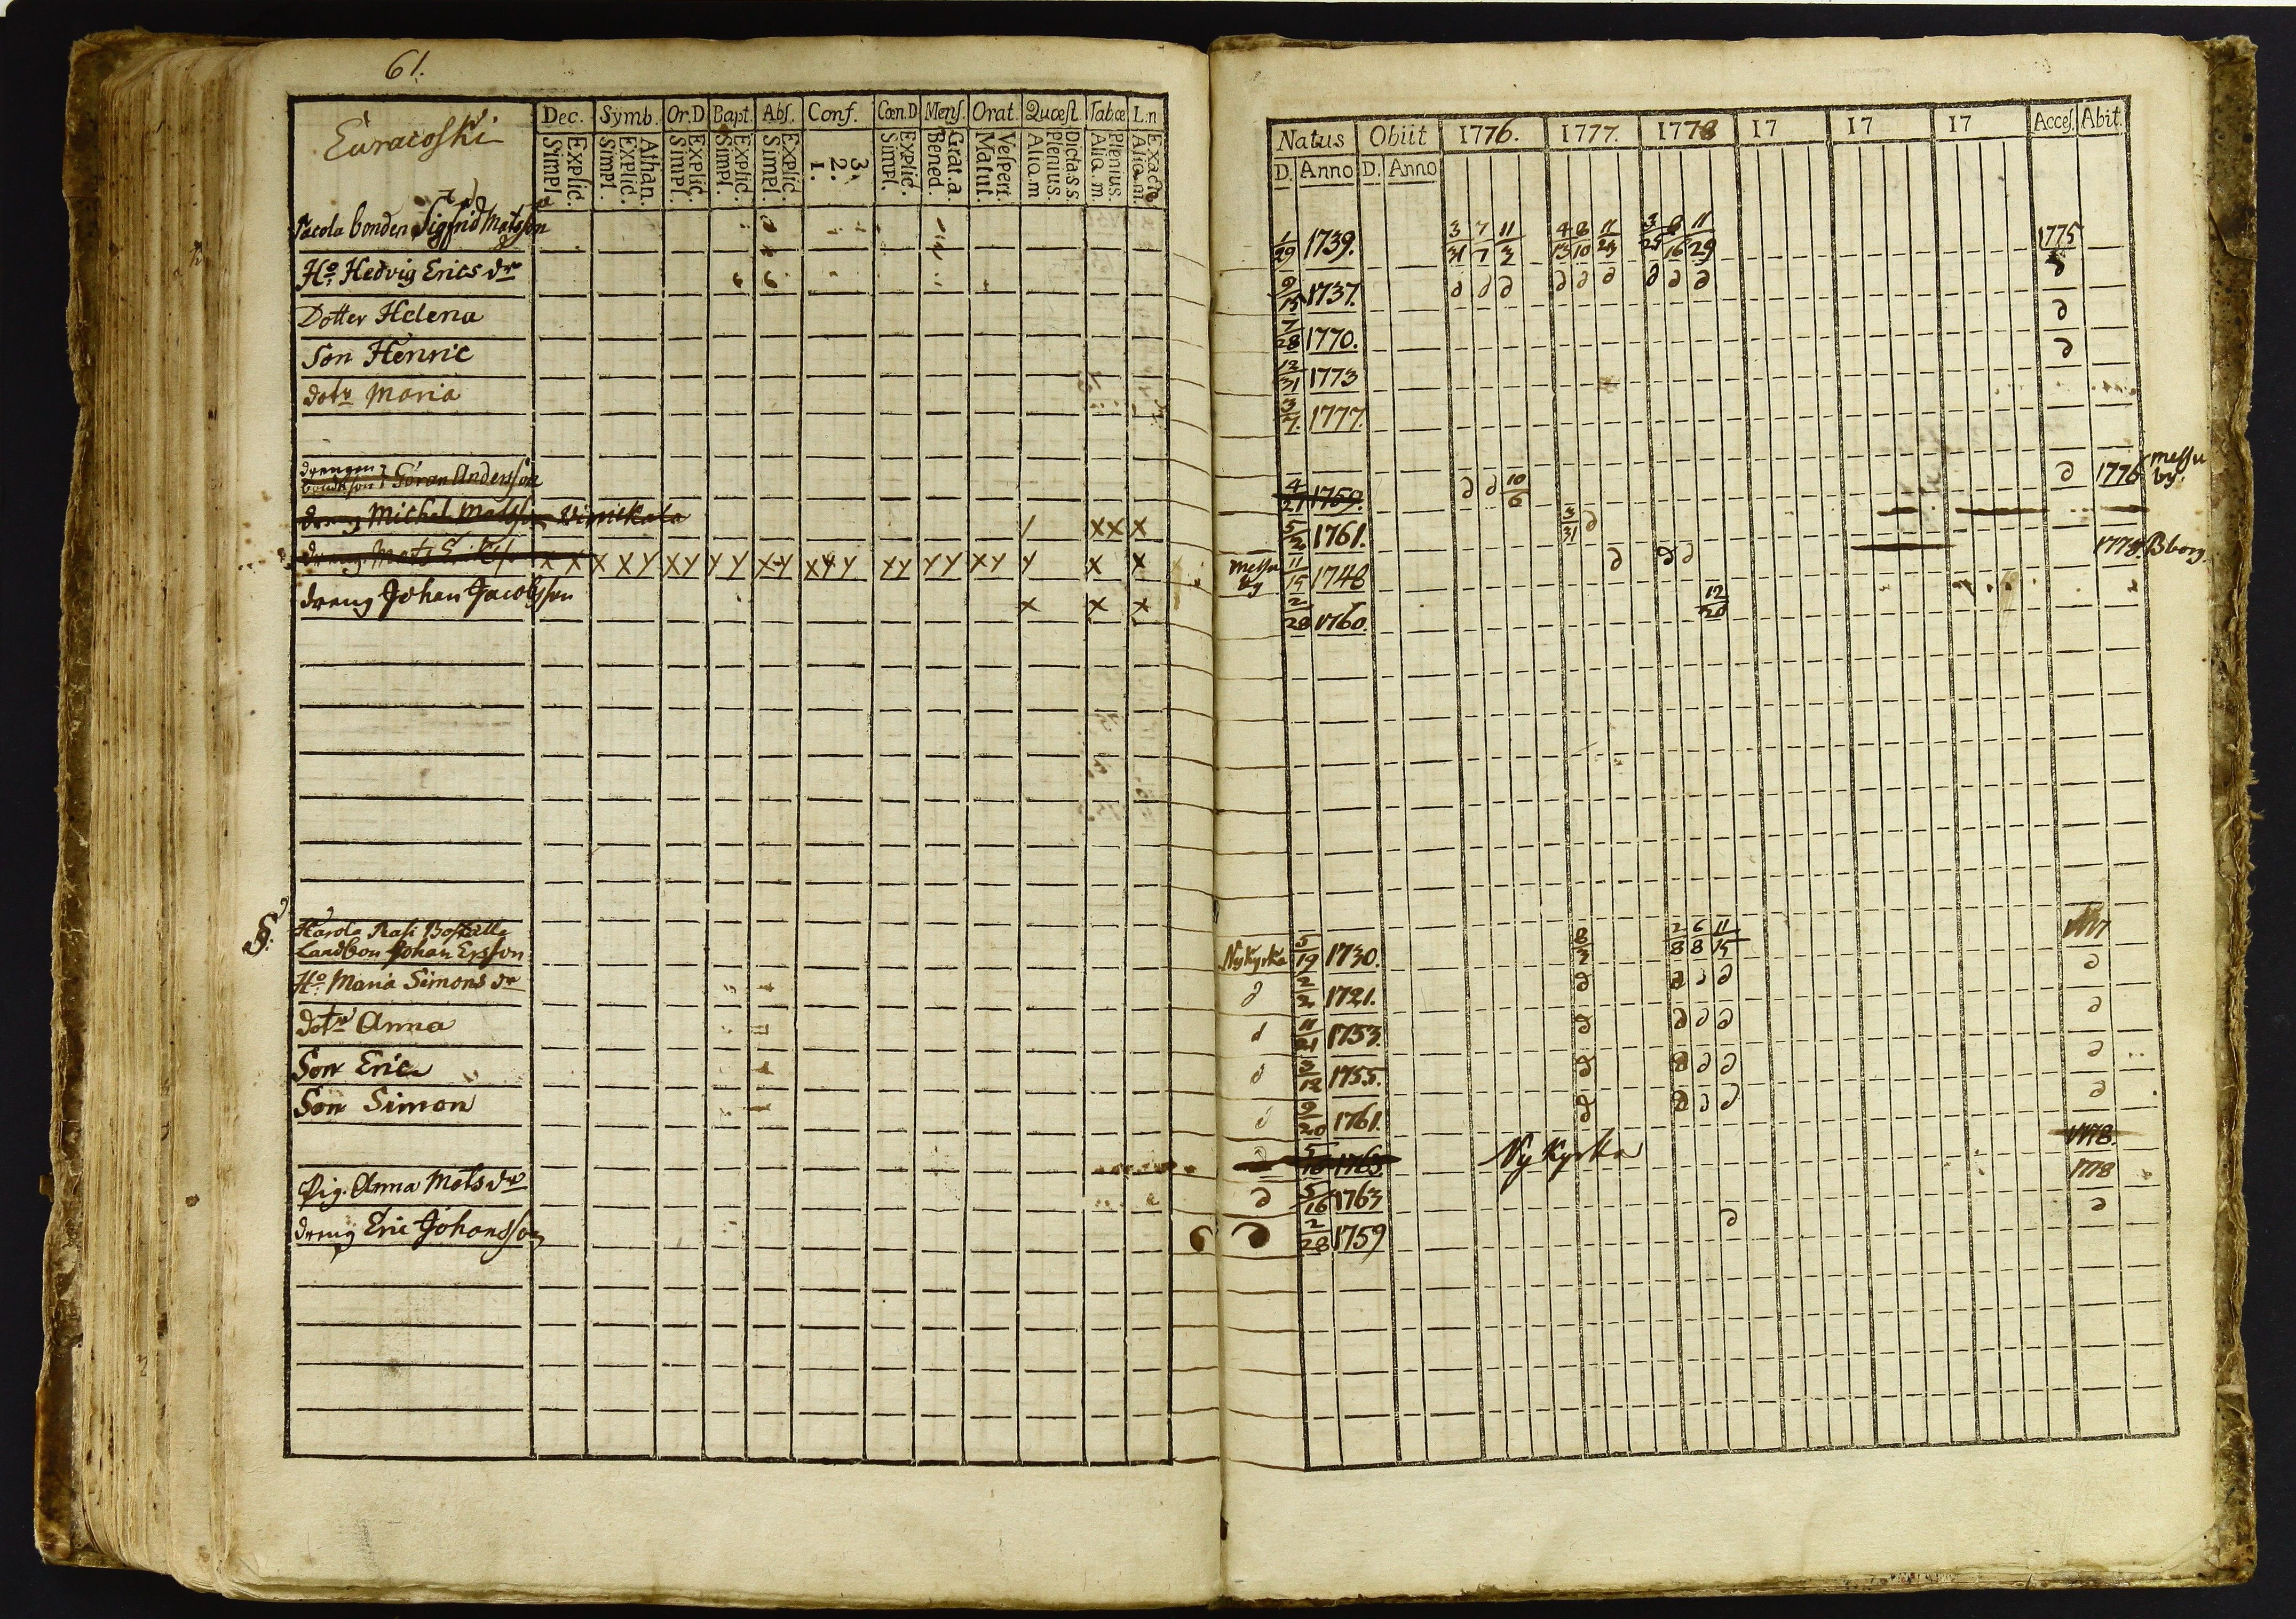 61.
Euracoski
Dec. Symb. Or.D Bapt. Abs. Conf. Cœn.D Mens. Orat. Quæst. Tabæ L.n
Explic. Simpl. Athan. Explic. Simpl. Explic. Simpl. Explic. Simpl. Explic. Simpl. 3. 2. 1. Explic. Simpl. Grat.a. Bened. Vespert. Matut. Dicta.s.s. Plenius. Aliq.m Plenius. Aliq.m. Exacte Aliq.m.
Natus Obiit 1776. 1777. 1778 17 17 17 Acces. Abit.
D. Anno D. Anno
bonden Sigfrid Matsson 1/29 1739. 3/31 7/7 11/3 4/13 8/10 11/23 3/25 8/16 11/29 1775
Ho: Hedvig Ericsdr 9/15 1737. d d d d d d d d d d
Dotter Helena 7/28 1770. d
Son Henric 12/31 1773 d
dotr Maria 3/7. 1777.
drengen
bondeson Göran Andersson 4/27 1759. d d 10/6 d 1776 messu by.
dreng Michel Matsson x x x 5/2 1761. 3/31 d
dreng Mats x x x x y x y y y x y x y y x y y y x y y x x messu by 11/15 1748 d d d 1778. Bborg.
dreng Johan Jacobsson x x x 2/28 1760. 12/20
§:
Harola Rasi Boställe
Landbon Johan Ersson Nykyrka 5/19 1730. 8/3 2/8 6/8 11/15 1777
Ho: Maria Simonsdr d 2/2 1721. d d d d d
dotr Anna d 11/21 1753. d d d d d
Son Eric d 3/12 1755. d d d d d
Son Simon d 9/20 1761. d d d d d
d 5/16 1763 Nykyrka 1778.
Pig. Anna Matsdr d 5/16 1763 1778
dreng Eric Johansson d 2/28 1759 d d